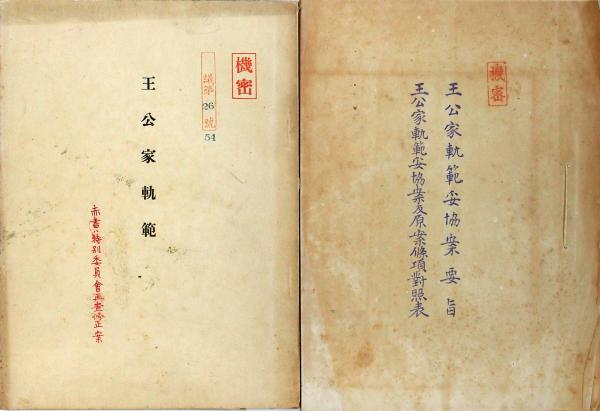 機密
議第
26
號
54
王公家軌範
赤書ハ特別委員會再査修正案
機密
王公家軌範妥協案要旨
王公家軌範妥協案及原案條項對照表